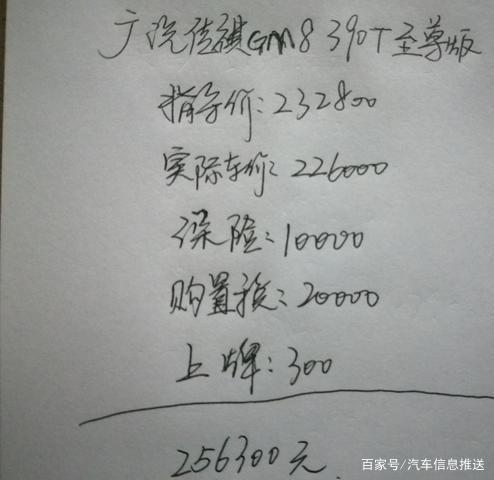 广汽传祺GM8 390T至尊版
指导价：232800
实际车价：226000
保险：10000
购置税：20000
上牌：300
256300元
百家号/汽车信息推送